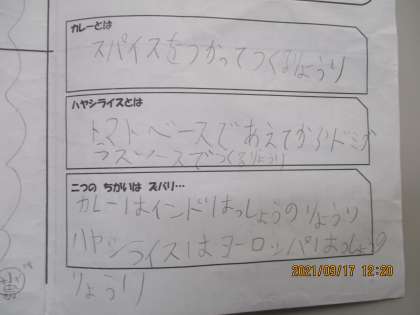 カレーとは
スパイスをつかってつくるりょうり
ハヤシライスとは
トマトベースであえてからドミグ
ラスソースでつくるりょうり
二つの ちがいは ズバリ…
カレーはインドはっしょうのりょうり
ハヤシライスはヨーロッパはっしょうの
りょうり
2021/09/17 12:20